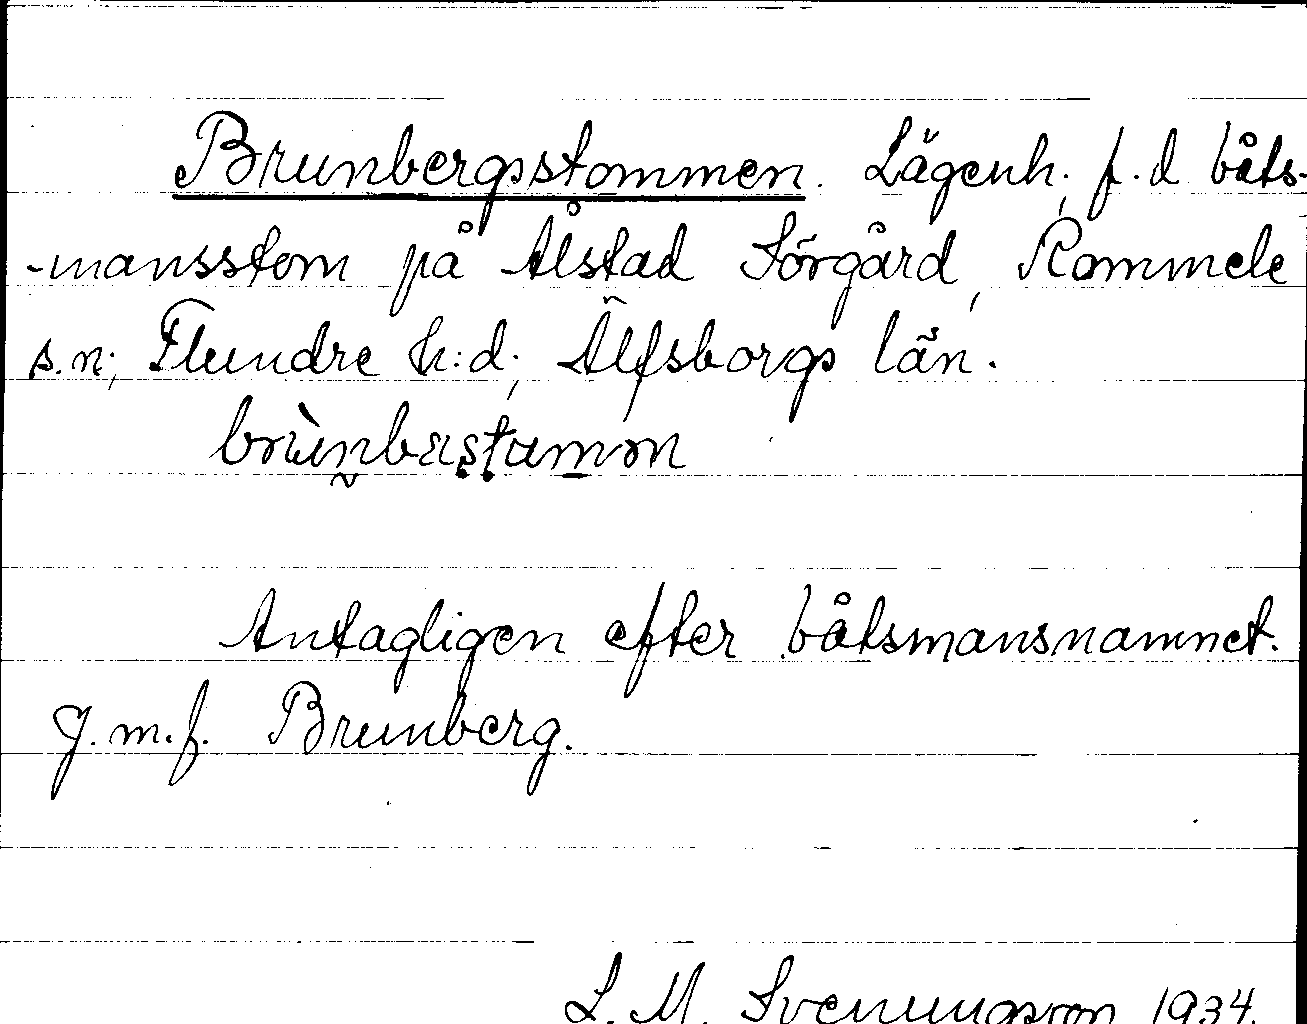 Brunbergsstommen. Lägenh., f.d båts-
-mansstom på Ålstad Sörgård, Rommele
s.n; Flundre h:d; Älfsborgs län.
Antagligen efter båtsmansnamnet.
J.m.f. Brunberg.
L. M. Svenungsson 1934.